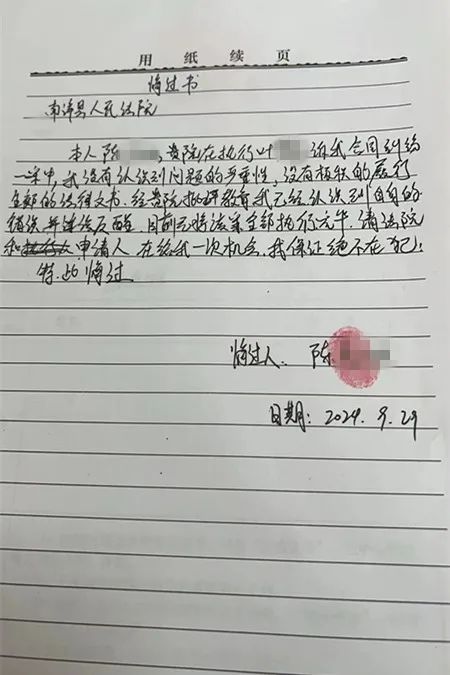 用纸续页
悔过书
南漳县人民法院
本人陈 ,贵院在执行叶 诉我合同纠纷
一案中,我没有认识到问题的严重性,没有积极的履行
生效的法律文书。经贵院批评教育我已经认识到自身的
错误并进行反省 目前已将该案全部执行完毕。请法院
和 申请人 在给我一次机会,我保证绝不在犯!
特此悔过
悔过人:陈
日期:2024.9.29